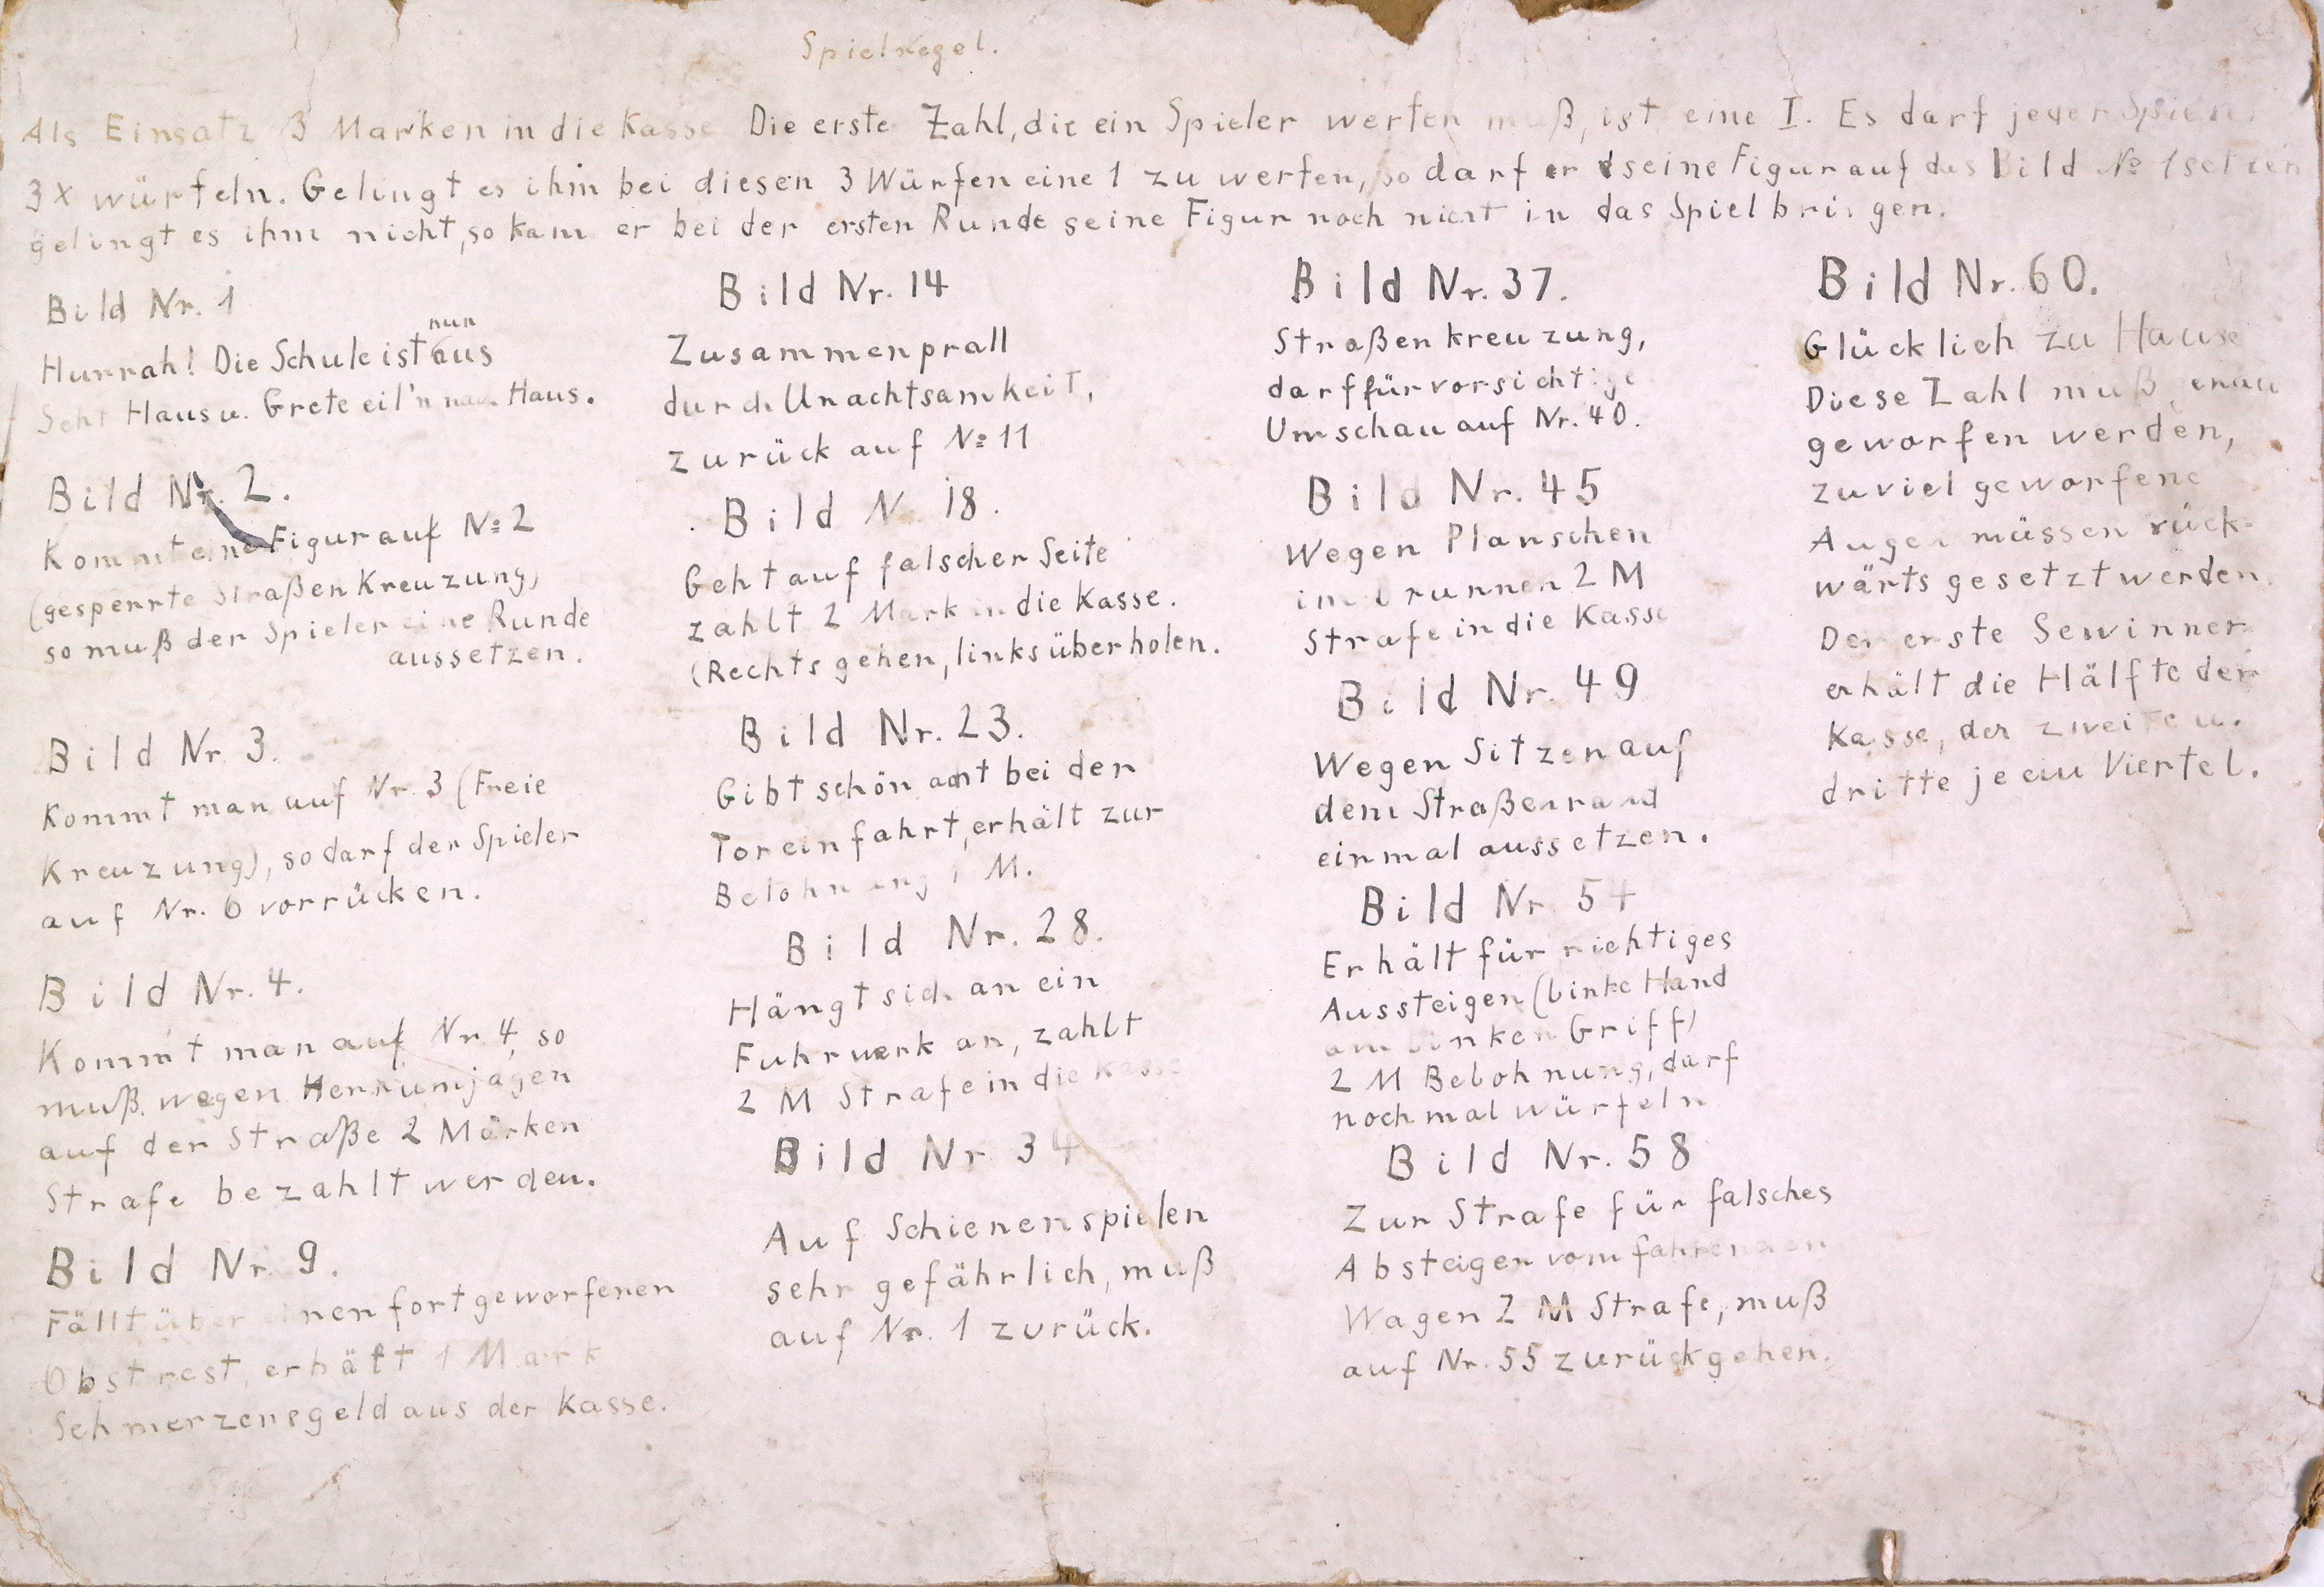 Spielregel.
Als Einsatz 3 Marken in die Kasse Die erste Zahl, die ein Spieler werfen muß, ist eine I. Es darf jeder Spieler
3x würfeln. Gelingt es ihm bei diesen 3 Würfen eine 1 zu werfen, so darf er seine Figur auf das Bild № 1 setzen
gelingt es ihm nicht, so kann er bei der ersten Runde seine Figur noch nicht in das Spiel bringen.
Bild Nr. 1
nun
Hurrah! Die Schule ist aus
Seht Haus u. Grete eil'n nach Haus.
Bild Nr. 2.
Kommt eine Figur auf № 2
(gesperrte Straßenkreuzung)
so muß der Spieler eine Runde
aussetzen.
Bild Nr. 3.
Kommt man auf Nr. 3 (Freie
Kreuzung), so darf der Spieler
auf Nr. 6 vorrücken.
Bild Nr. 4.
Kommt man auf Nr. 4, so
muß wegen Herrumjagen
auf der Straße 2 Marken
Strafe bezahlt werden.
Bild Nr. 9.
Fällt über einen fortgeworfenen
Obstrest, erhält 1 Mark
Schmerzensgeld aus der Kasse.
Bild Nr. 14
Zusammenprall
durch Unachtsamkeit,
zurück auf № 11
Bild N 18.
Geht auf falscher Seite
zahlt 2 Mark in die Kasse.
(Rechts gehen, links überholen.
Bild Nr. 23.
Gibt schön acht bei der
Toreinfahrt, erhält zur
Belohnung 1 M.
Bild Nr. 28.
Hängt sich an ein
Fuhrwerk an, zahlt
2 M Strafe in die Kasse
Bild Nr 34
Auf Schienen spielen
sehr gefährlich, muß
auf Nr. 1 zurück.
Bild Nr. 37.
Straßenkreuzung,
darf für vorsichtige
Umschau auf Nr. 40.
Bild Nr. 45
Wegen Planschen
im Brunnen 2 M
Strafe in die Kasse
Bild Nr. 49
Wegen Sitzen auf
dem Straßenrand
einmal aussetzen.
Bild Nr 54
Erhält für richtiges
Aussteigen (linke Hand
am linken Griff)
2 M Belohnung, darf
nochmal würfeln
Bild Nr. 58
Zur Strafe für falsches
Absteigen vom fahrenden
Wagen 2 M Strafe, muß
auf Nr. 55 zurückgehen.
Bild Nr. 60.
Glücklich zu Hause
Diese Zahl muß genau
geworfen werden,
zuviel geworfene
Augen müssen rück-
wärts gesetzt werden.
Der erste Gewinner
erhält die Hälfte der
Kasse, der zweite u.
dritte je ein Viertel.